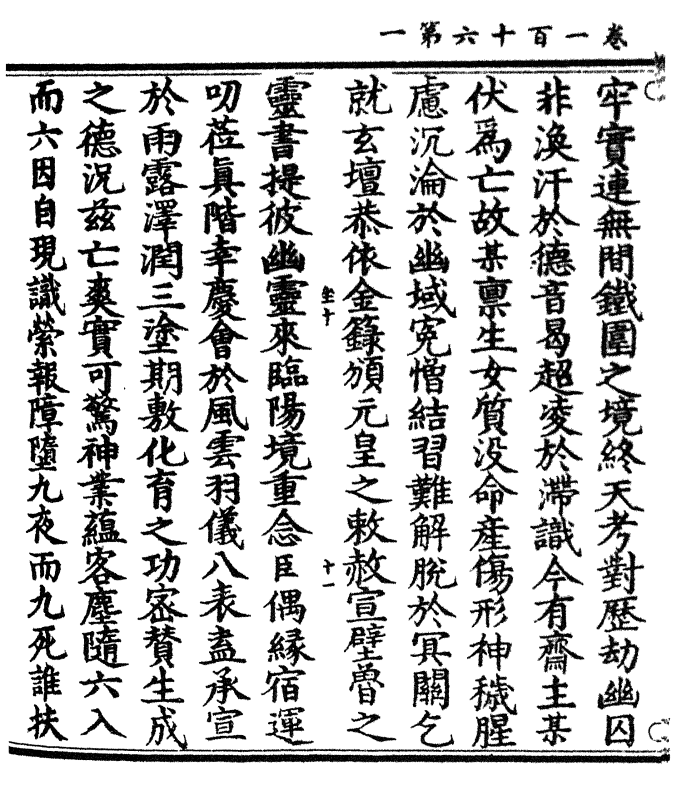 卷一百六十第一
牢實連無間鐵圍之境終天考對歷劫幽囚
非渙汗於德音曷超凌於滯識今有齋主某
伏爲亡故某禀生女質没命產傷形神穢腥
慮沉淪於幽域寃憎結習難解脫於冥關乞
就玄壇恭依金籙頒元皇之敕赦宣璧曽之
坐十
十一
靈書提彼幽靈來臨陽境重念臣偶緣宿運
叨莅眞階幸慶會於風雲羽儀八表盍承宣
於雨露澤潤三塗期敷化育之功宻賛生成
之德況兹亡爽實可驚神業蘊客塵隨六入
而六因自現識縈報障墮九夜而九死誰扶